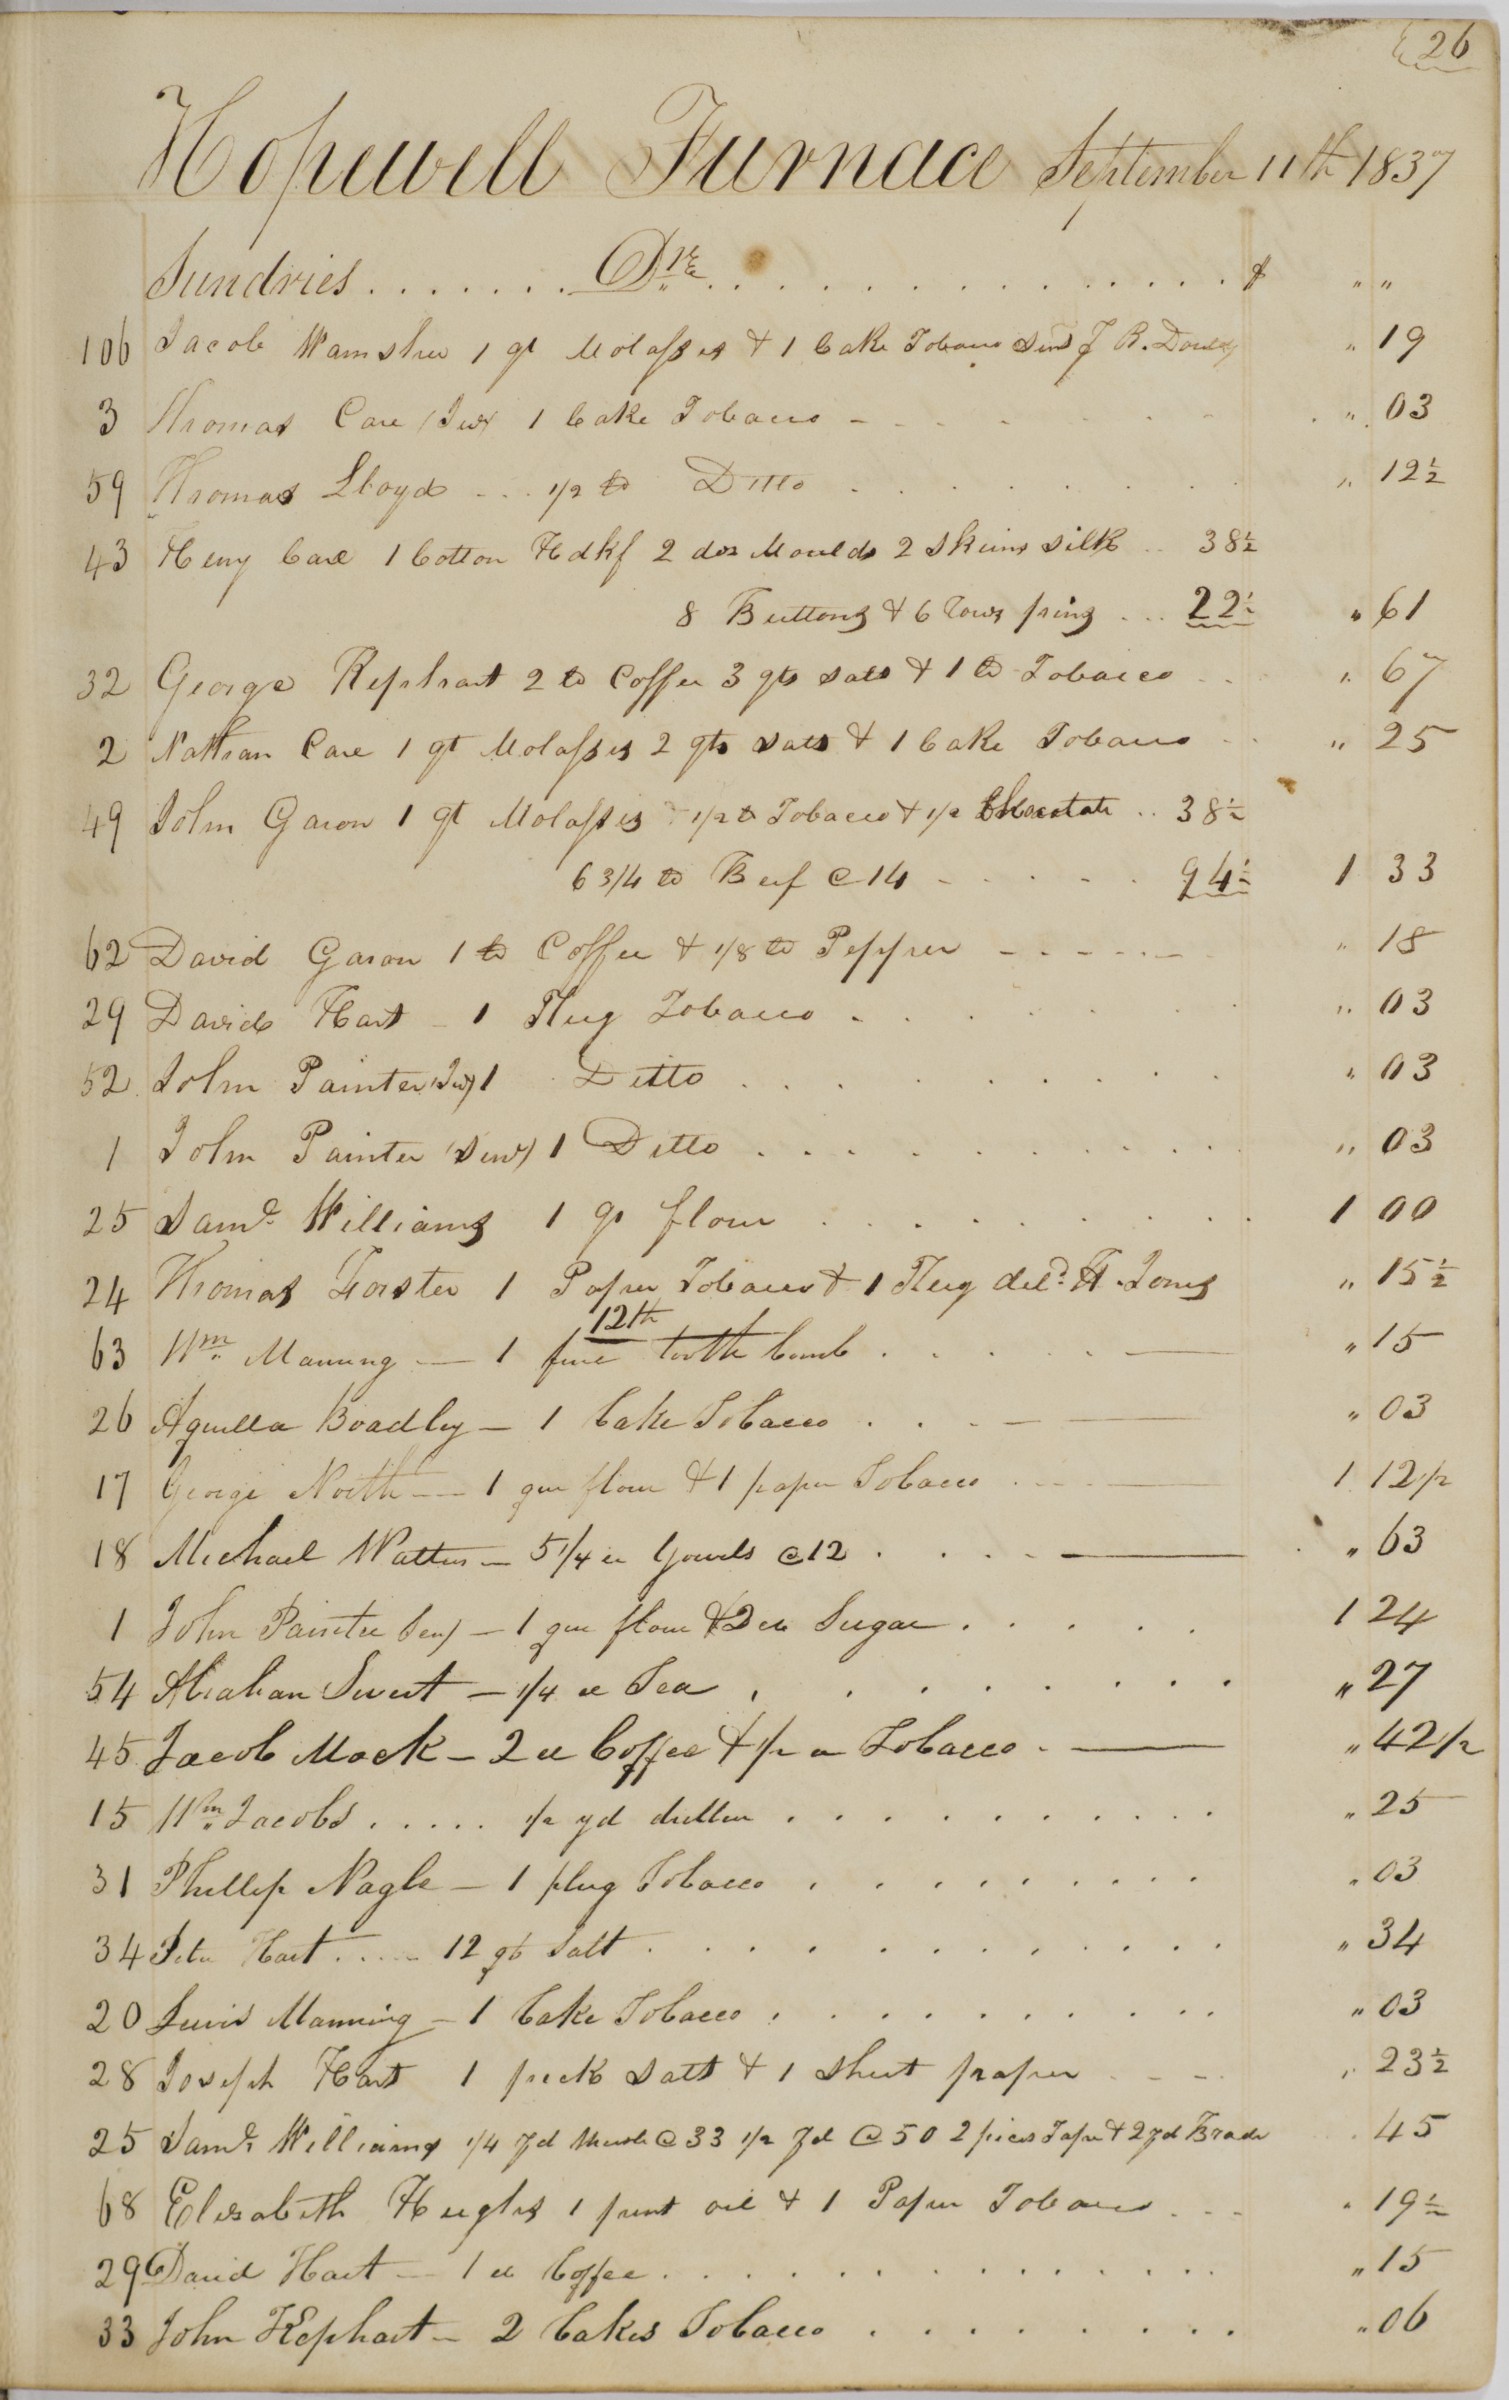 26
Hopewell Furnace September 11th 1837
Sundries . . . . . . . Dr . . . . . . . . . . . . . . $ " "
106 Jacob Wamsher 1 qt Molasses & 1 Cake Tobacco " 19
3 Thomas Care (Jur) 1 Cake Tobacco " 03
59 Thomas Lloyd 1/2 lb Ditto " 12½
43 Heny Care 1 Cotton Hdkf 2 doz Moulds 2 Skeins silk 38½
8 Buttons & 6 22½ " 61
32 George Kephart 2 lb Coffee 3 qts salt & 1 lb Tobacco " 67
2 Nathan Care 1 qt Molasses 2 qts salt & 1 Cake Tobacco " 25
49 John Garon 1 qt Molasses 1/2 lb Tobacco & 1/2 38½
6 3/4 lb Beef @ 14 94½ 1 33
62 David Garon 1 lb Coffee & 1/8 lb Pepper " 18
29 David Hart 1 Plug Tobacco " 03
52 John Painter (Jur) 1 Ditto " 03
1 John Painter (Senr) 1 Ditto " 03
25 Saml Williams 1 qr flour 1 00
24 Thomas Forster 1 Paper Tobacco & 1 Plug deld H. Jones " 15½
12th
63 Wm Manning — 1 fine tooth Comb " 15
26 Aquilla Boadley — 1 Cake Tobacco " 03
17 George North — 1 qur flour & 1 paper Tobacco 1 12 1/2
18 Michael Watters — 5 1/4 lb Gowels @ 12 " 63
1 John Painter Sen) — 1 qur flour & 2 lb Sugar 1 24
54 Abraham Sweet — 1/4 lb Tea " 27
45 Jacob Mock — 2 lb Coffee & 1/2 lb Tobacco " 42 1/2
15 Wm Jacobs . . . . . 1/2 yd " 25
31 Phillip Nagle — 1 plug Tobacco " 03
34 Peter Hart . . . . 12 qts Salt " 34
20 Lewis Manning — 1 Cake Tobacco " 03
28 Joseph Hart 1 peck Salt & 1 Sheet paper " 23½
25 Saml Williams 1/4 yd @ 33 1/2 yd @ 50 2 pieces Tape & 2 yd 45
68 Elizabeth Hughes 1 pint oil & 1 Paper Tobacco " 19½
29 David Hart — 1 lb Coffee " 15
33 John Kephart — 2 Cakes Tobacco " 06